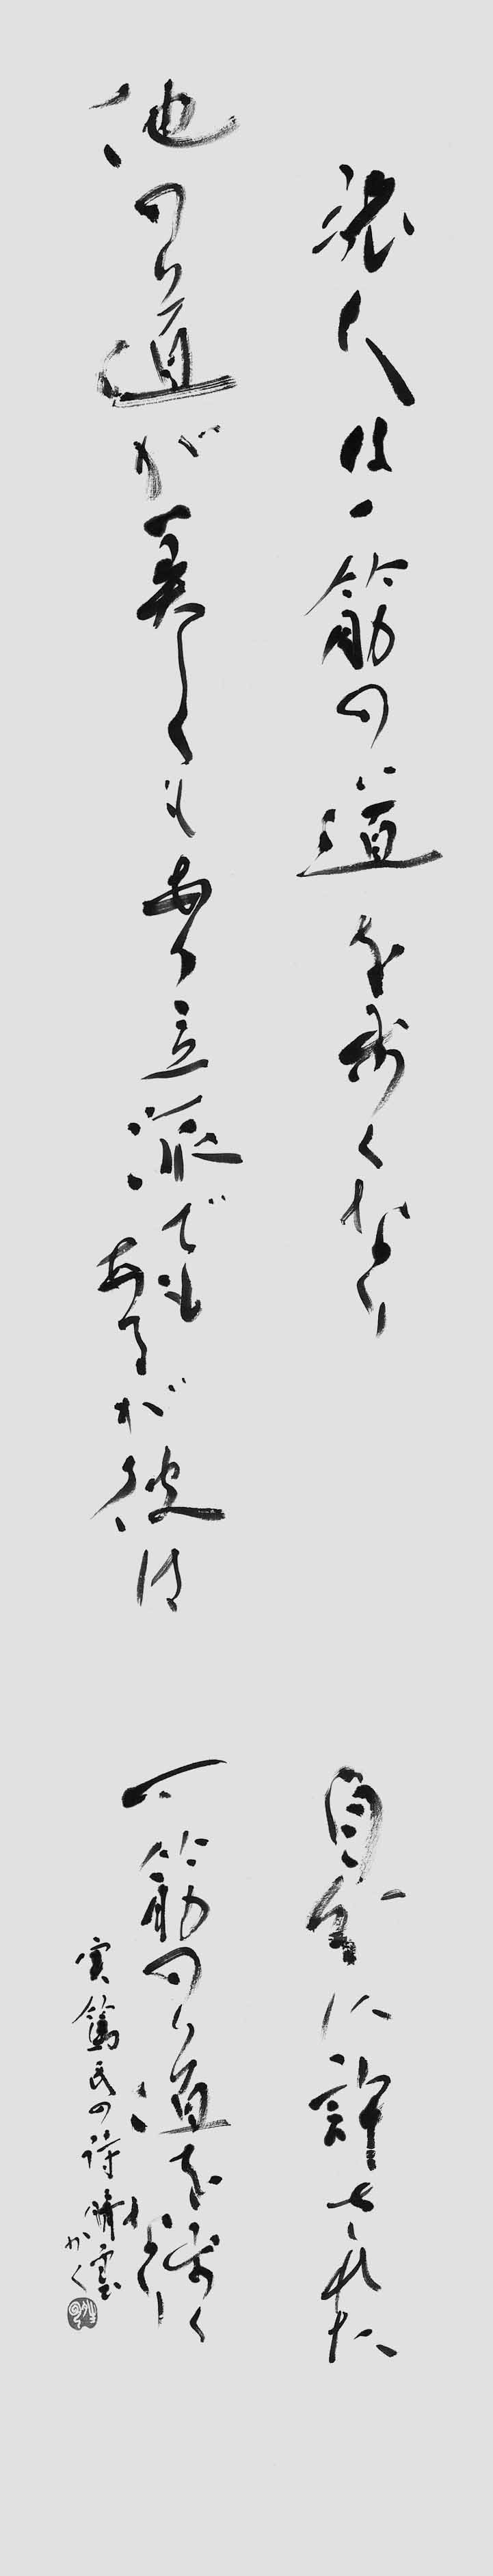 旅人は一筋の道を歩くなり　自分に許された
他の道が美しくもあり立派でもあるが彼は　一筋の道を歩くなり
実篤氏の詩 晴雲かく